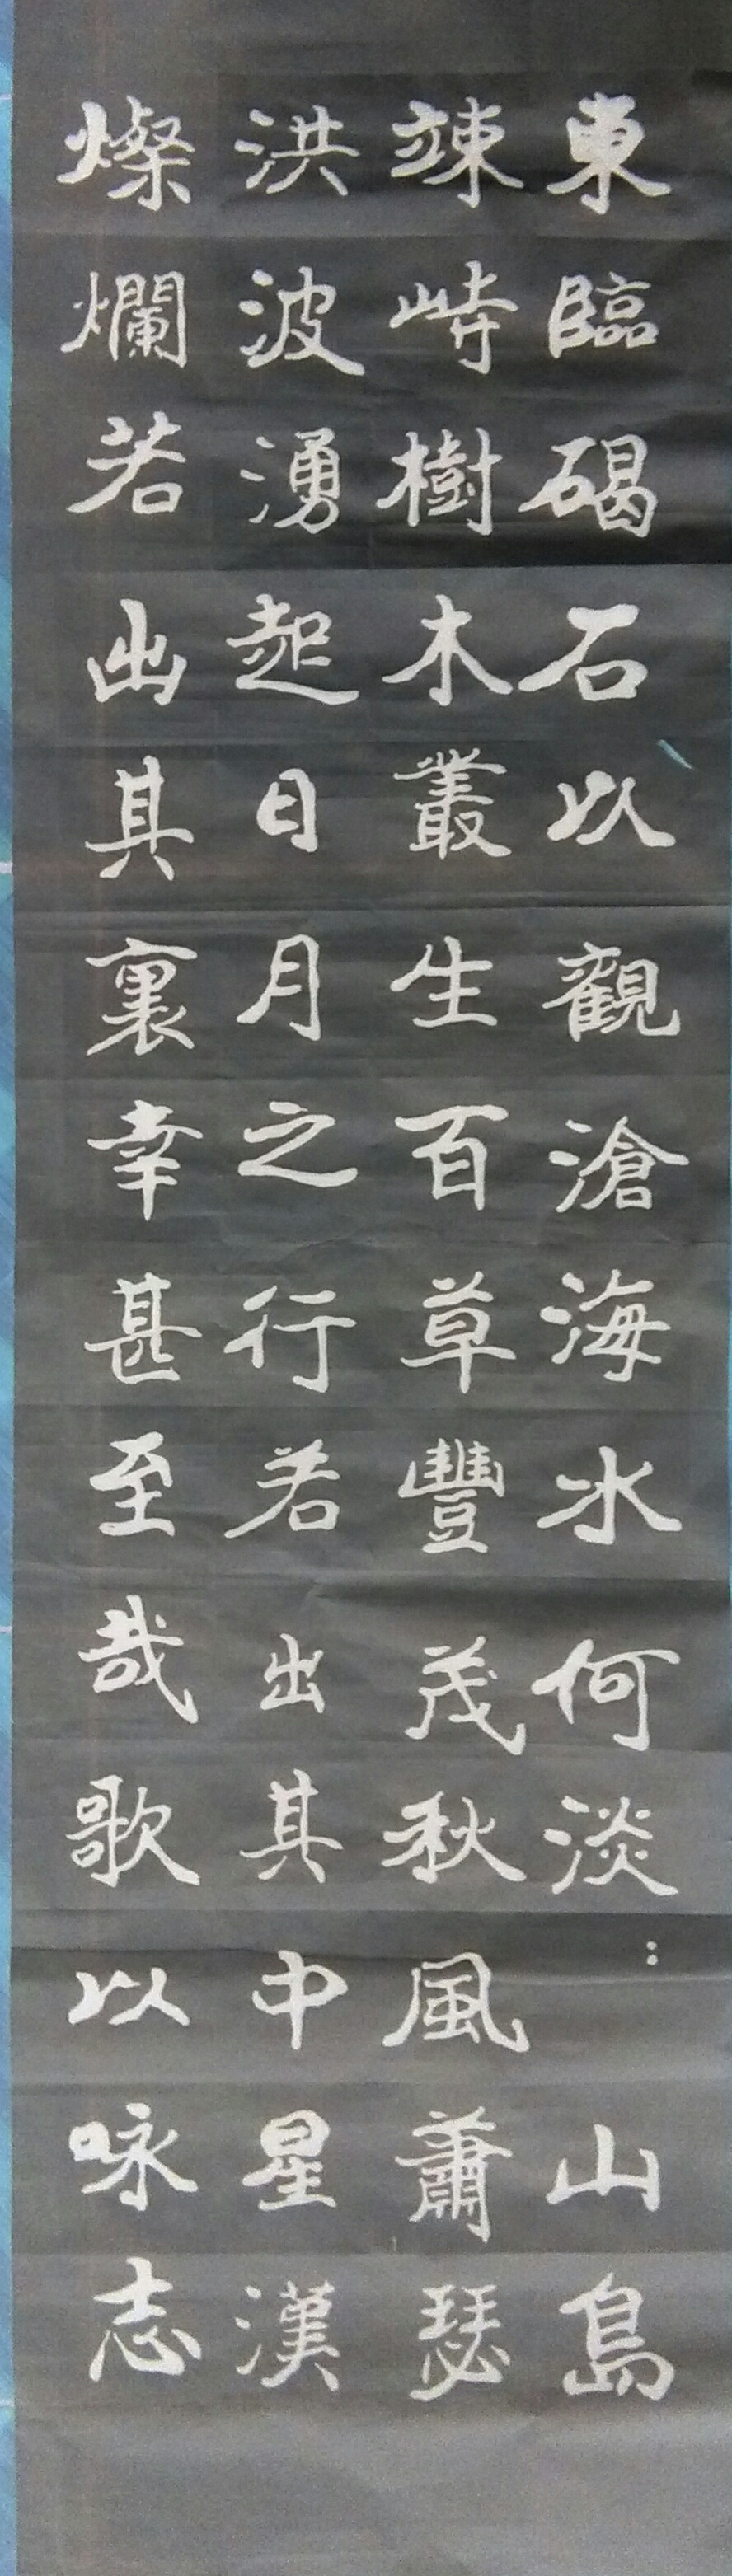 東臨碣石以觀滄海水何淡:山島
竦峙樹木叢生百草豐茂秋風蕭瑟
洪波湧起日月之行若出其中星漢
燦爛若出其裏幸甚至哉歌以咏志